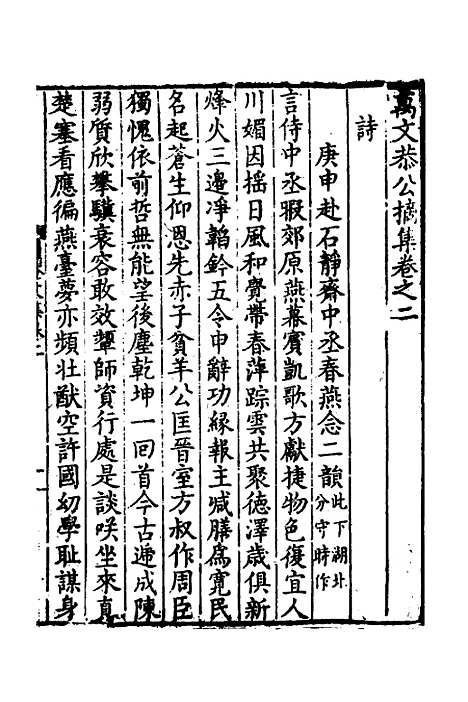 萬文恭公摘集卷之二
詩
庚申赴石靜齋中丞春燕念二韻此下湖北分守時作
言侍中丞暇郊原燕幕賓凱歌方獻捷物色復宜人
川媚因揺日風和覺帶春萍踪雲共聚德澤歳俱新
烽火三邊凈韜鈐五令申辭功緣報主减膳為寛民
名起蒼生仰恩先赤子貧羊公匡晉室方叔作周臣
獨愧依前哲無能望後塵乾坤一回首今古遞成陳
弱質欣攀驥衰容敢效顰師資行處是談咲坐來真
楚塞看應徧燕臺夢亦頻壮猷空許國幼學耻謀身